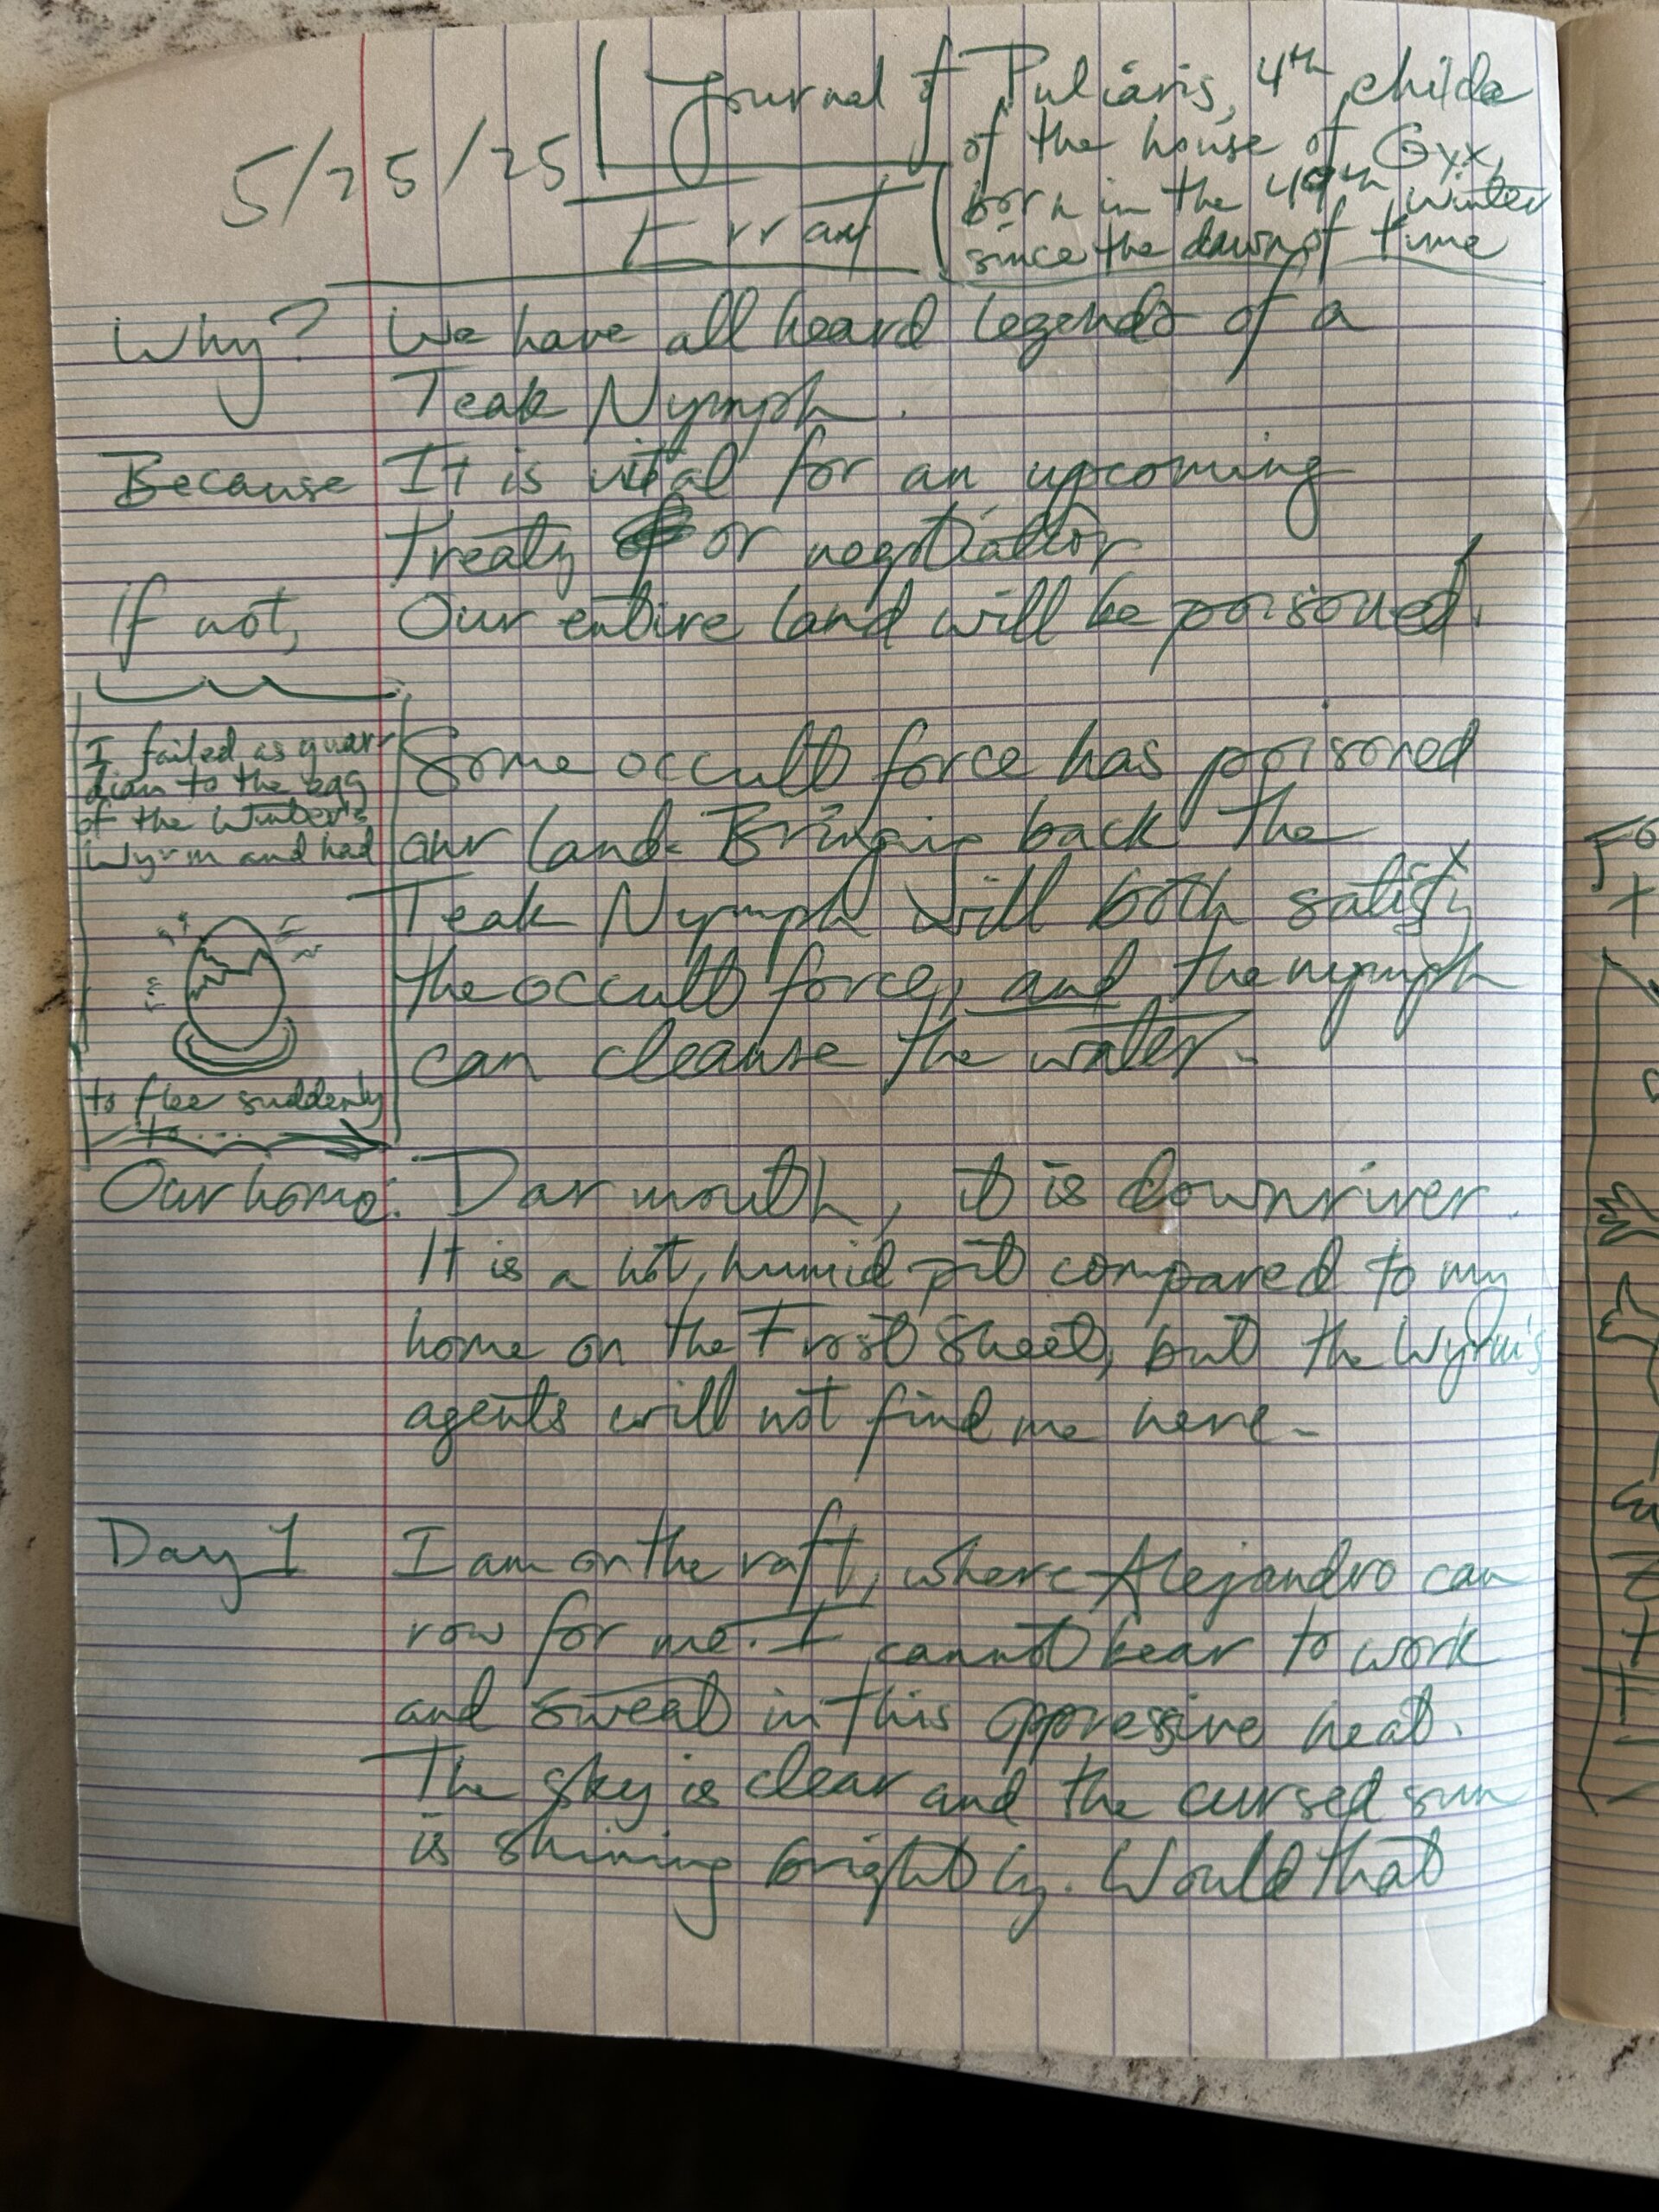 5/25/25
Journal of Puliaris, 4th childe
of the house of Gyx,
born in the 49th winter
since the dawn of time
Errant
Why? We have all heard legends of a
Teak Nymph.
Because It is vital for an upcoming
treaty or negotiation
If not, Our entire land will be poisoned.
I failed as guar-
dian to the egg
of the Winter's
Wyrm and had
to flee suddenly
to...
Some occult force has poisoned
our land. Bringing back the
Teak Nymph will both satisfy
the occult force, and the nymph
can cleanse the water.
Our home: Darmouth, it is downriver.
It is a hot, humid pit compared to my
home on the Frost Sheet, but the Wyrm's
agents will not find me here.
Day 1 I am on the raft, where Alejandro can
row for me. I cannot bear to work
and sweat in this oppressive heat.
The sky is clear and the cursed sun
is shining brightly. Would that